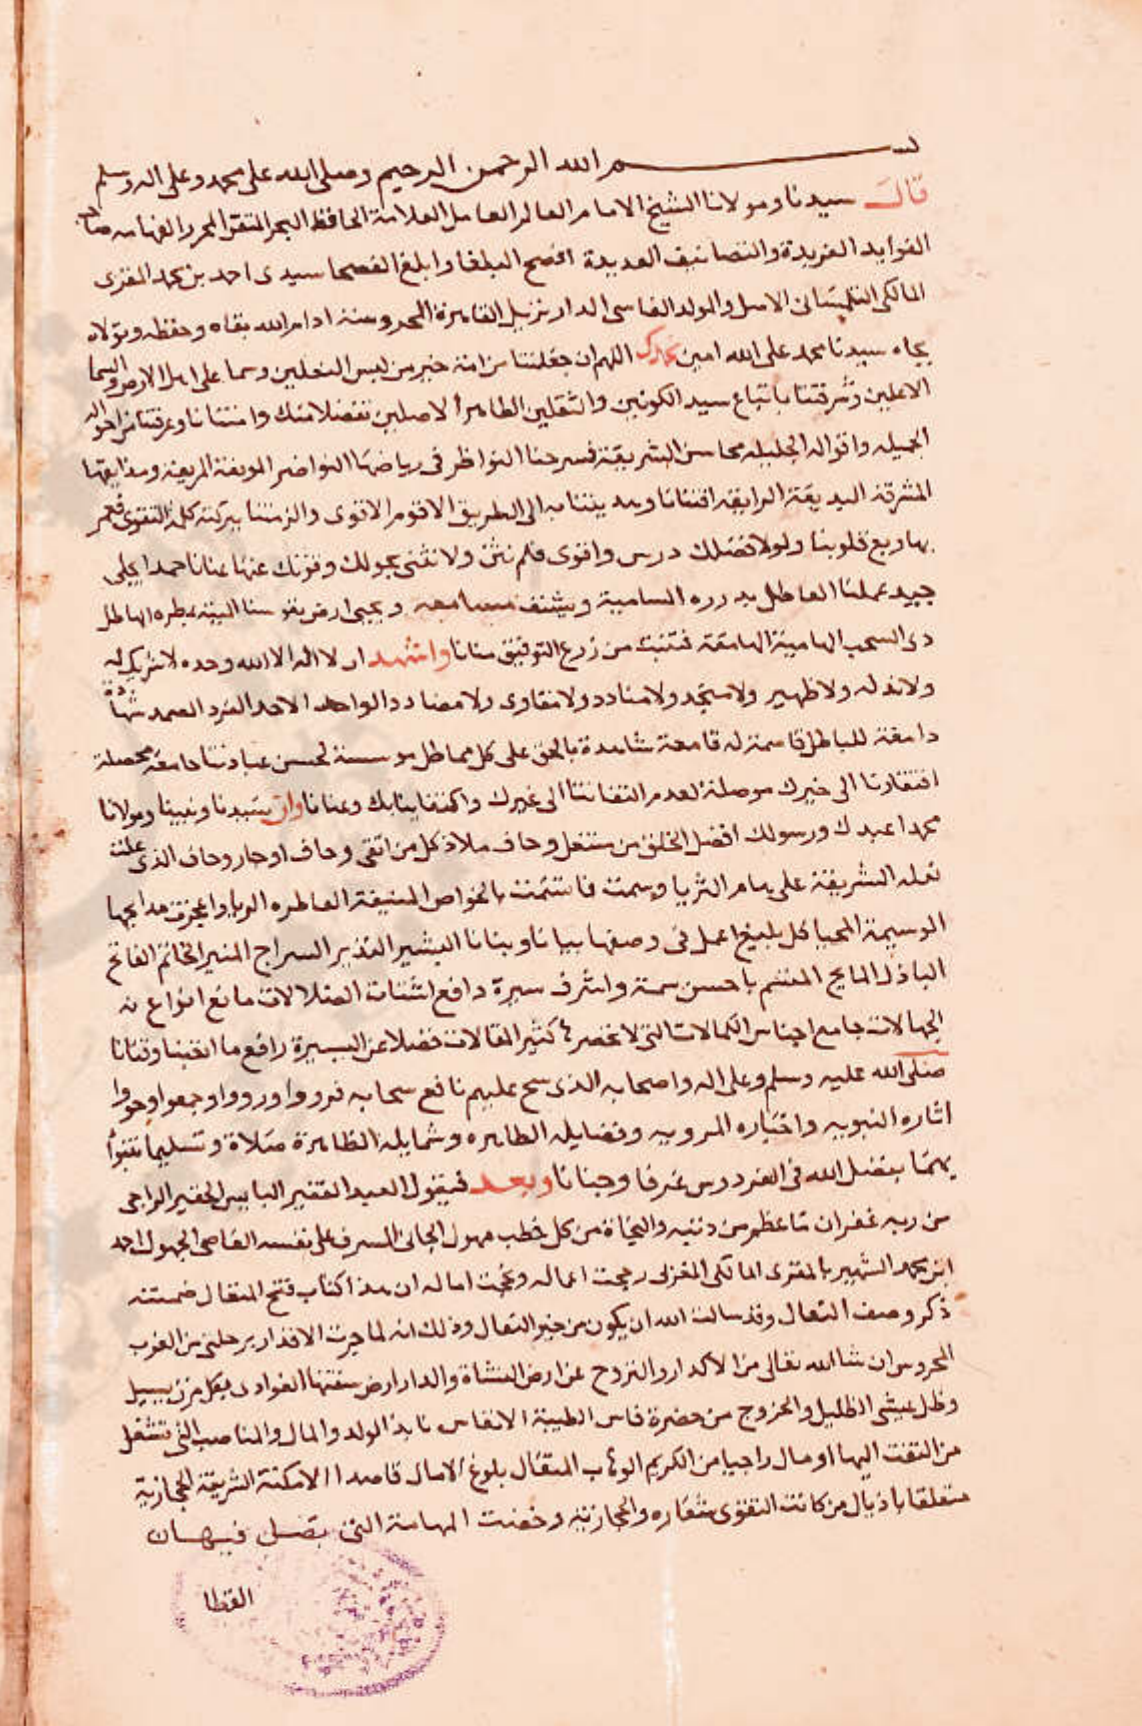 بســـــــم الله الرحمن الرحيم وصلى الله على محمد وعلى اله وسلم
قال سيدنا ومولانا الشيخ الامام العالم العامل العلامة الحافظ البحر المتقن المحرر الفهامه صاحب
الفوايد الفريدة والتصانيف العديدة افصح البلغا وابلغ الفصحا سيدى احمد بن محمد المقرى
المالكى التلمسانى الاصل والمولد الفاسى الدار نزيل القاهرة المحروسة ادام الله بقاه وحفظه وتولاه
بجاه سيدنا محمد على الله امين نحمدك اللهم ان جعلتنا من امة خير من لبس النعلين وسما على اهل الارض والسما
الاعلين وشرفتنا باتباع سيد الكونين والثقلين الطاهر الاصلين تفضلا منك وامتنانا وعرفتنا من احواله
الجميله واقواله الجليله محاسن الشريعة فسرحنا النواظر فى رياضها النواضر المونقة المريعه وحدايقها
المشرقة البديعة الرايقه افتنانا وهديتنا به الى الطريق الاقوم الاقوى والزمتنا ببركته كلمة التقوى فعمر
بها ربع قلوبنا ولولا فضلك درس واقوى فلم نثن ولا نثنى بحولك وقوتك عنها عنانا حمدا يحلى
جيد عملنا العاطل بدرره السامية ويشنف مسامعه ويحيى ارض نفوسنا الميتة بطره الهاطل
ذى السحب الهامية الهامعة فتنبت من زرع التوفيق منانا واشهد ان لا اله الا الله وحده لا شريك له
ولا ند له ولا ظهير ولا منجد ولا منادد ولا مقاوى ولا مضادد الواحد الاحد الفرد الصمد شهادة
دامغة للباطل قاصمة له قامعة شاهدة بالحق على كل مماطل موسسة لحسن عبادتنا جامعة محصلة
افتقارنا الى خيرك موصلة لعدم التفاتنا الى غيرك واكتفاينا بك وعنانا وان سيدنا ونبينا ومولانا
محمدا عبدك ورسولك افضل الخلق من منتعل وحاف ملاذ كل من اتقى وخاف او جار وحاف الذى علت
نعله الشريفة على هام الثريا وسمت فاتسمت بالخواص المنيفة العاطره الريا واعجزت مدايحها
الوسيمة المحيا كل بليغ اعمل فى وصفها بيانا وبنانا البشير النذير السراج المنير الخاتم الفاتح
الباذل المايح المتسم باحسن سمة واشرف سيرة دافع اشتات الضلالات مانع انواع
الجهالات جامع اجناس الكمالات التى لا تحصر كثير المقالات فضلا عن اليسيرة رافع ما اتعبنا وعنانا
صلى الله عليه وسلم وعلى اله واصحابه الذى سح عليهم نافع سحابه فرووا ورووا وجمعوا وحووا
اثاره النبويه واخباره المرويه وفضايله الطاهره وشمايله الظاهرة صلاة وتسليما نتبوأ
بهما بفضل الله فى الفردوس غرفا وجنانا وبعد فيقول العبد الفقير البايس الحقير الراجى
من ربه غفران ما عظم من ذنبه والنجاة من كل خطب مهول الجانى المسرف على نفسه العاصى الجهول احمد
ابن محمد الشهير بالمقرى المالكى المغربى رجحت اعماله ونجحت اماله ان هذا كتاب فتح المتعال ضمنته
ذكر وصف النعال وقد سالت الله ان يكون من خير الفعال وذلك انه لما جرت الاقدار برحلتى من الغرب
المحروس ان شا الله تعالى من الاكدار والنزوح عن ارض النشاة والدار ارض سقتها الغوادى بكل مزن يسيل
وظل عيشى الظليل والخروج من حضرة فاس الطيبة الانفاس نابذ الولد والمال والمناصب التى تشغل
من التفت اليها او مال راجيا من الكريم الوهاب المتعال بلوغ الامال قاصدا الامكنة الشريفة الحجازية
متعلقا باذيال من كانت التقوى شعاره والحجازية وخضت المهامة التى تضل فيهـــان
القطا